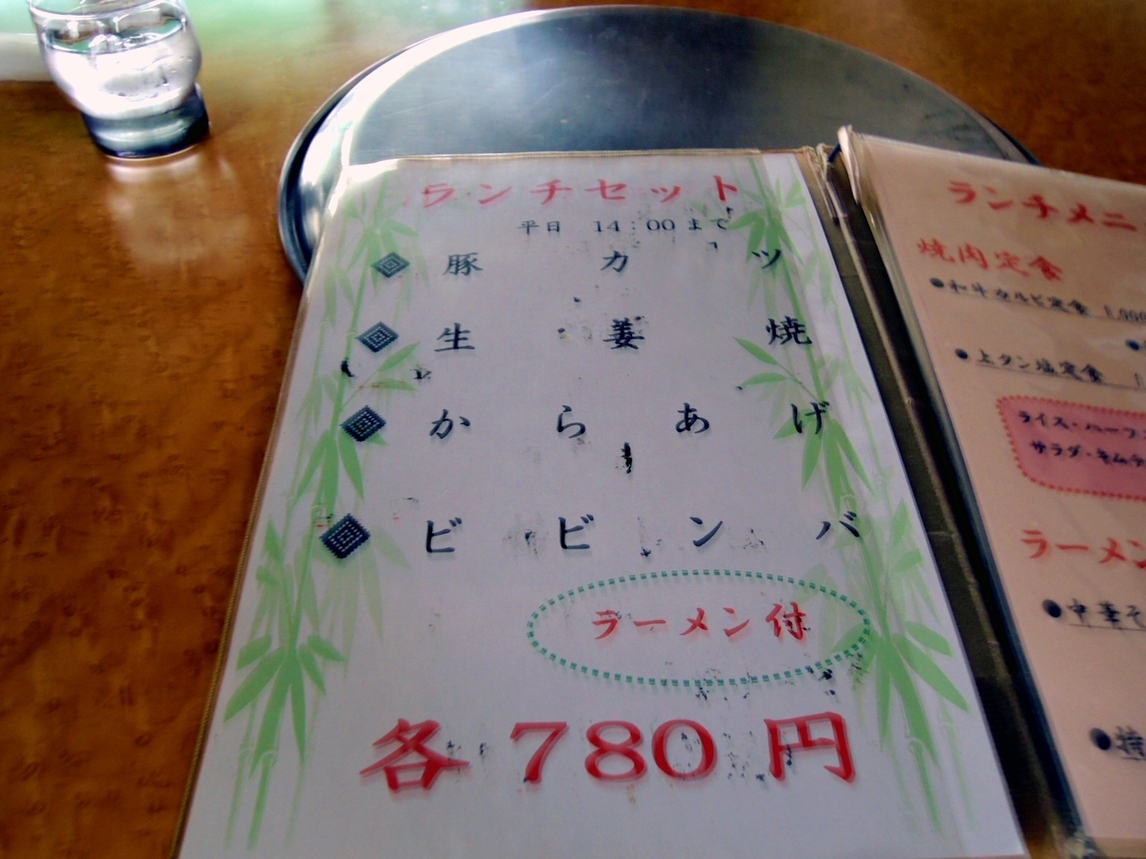 ランチセット
平日 14:00 まで
豚カツ
生姜焼
からあげ
ビビンバ
ラーメン付
各 780 円
ランチメニ
焼肉定食
●和牛カルビ定食 1,000
●上タン塩定食
ライス・ハーフ
サラダ・キムチ
ラーメン
●中華そ